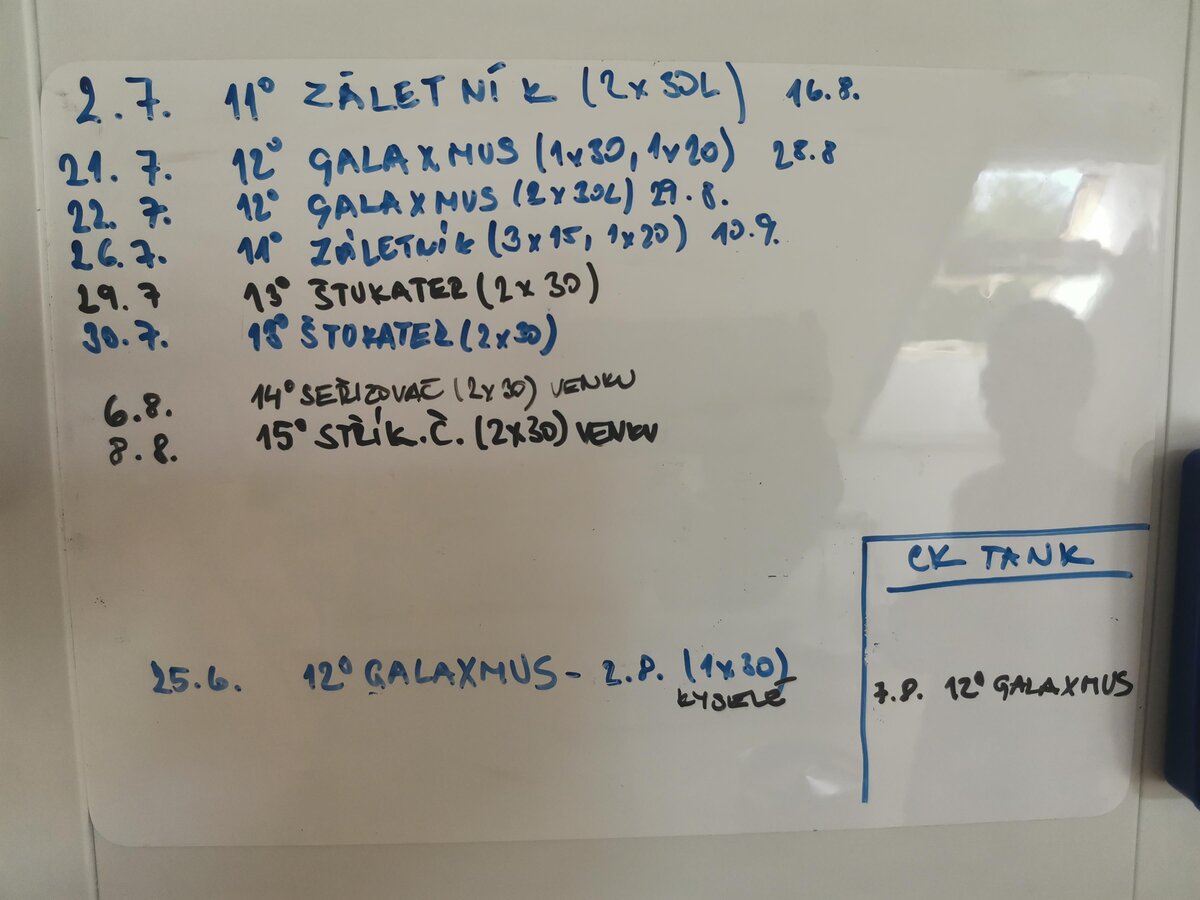 2.7. 11° ZÁLETNÍK (2x30L) 16.8.
21.7. 12° GALAXMUS (1x30, 1x20) 28.8
22.7. 12° GALAXMUS (2x30L) 29.8.
26.7. 11° ZÁLETNÍK (3x15, 1x20) 10.9.
29.7 13° ŠTUKATER (2x30)
30.7. 13° ŠTUKATER (2x30)
6.8. 14° SEŘIZOVAČ (2x30) VENKU
8.8. 15° STŘÍK.Č. (2x30) VENKU
CK TANK
25.6. 12° GALAXMUS - 2.8. (1x30)
KYSELÉ
7.8. 12° GALAXMUS